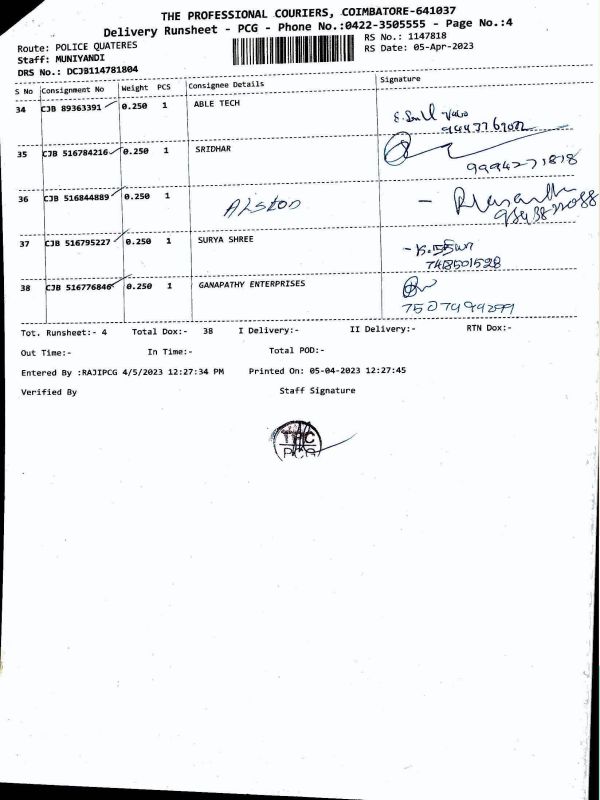 THE PROFESSIONAL COURIERS, COIMBATORE-641037
Delivery Runsheet - PCG - Phone No.:0422-3505555 - Page No.:4
Route: POLICE QUATERES
RS No.: 1147818
Staff: MUNIYANDI
RS Date: 05-Apr-2023
DRS No.: DCJB114781804
S No Consignment No Weight PCS Consignee Details Signature
34 CJB 89363391 0.250 1 ABLE TECH
35 CJB 516784216 0.250 1 SRIDHAR
9994271818
36 CJB 516844889 0.250 1 ALSTOD
37 CJB 516795227 0.250 1 SURYA SHREE
38 CJB 516776846 0.250 1 GANAPATHY ENTERPRISES
Tot. Runsheet:- 4 Total Dox:- 38 I Delivery:- II Delivery:- RTN Dox:-
Out Time:- In Time:- Total POD:-
Entered By :RAJIPCG 4/5/2023 12:27:34 PM Printed On: 05-04-2023 12:27:45
Verified By Staff Signature